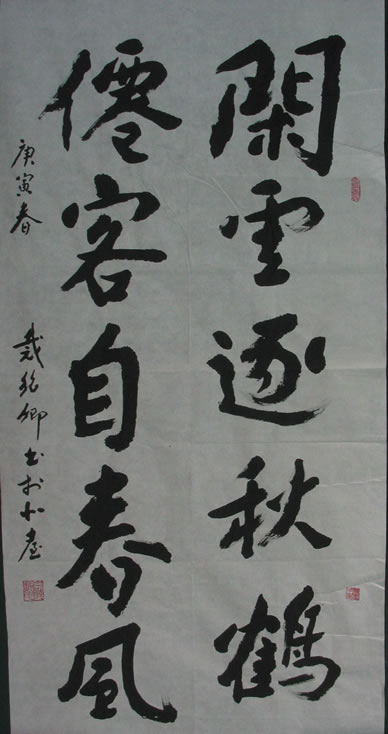 閑雲逐秋鶴
僊客自春風
庚寅春
戴 卿書於小